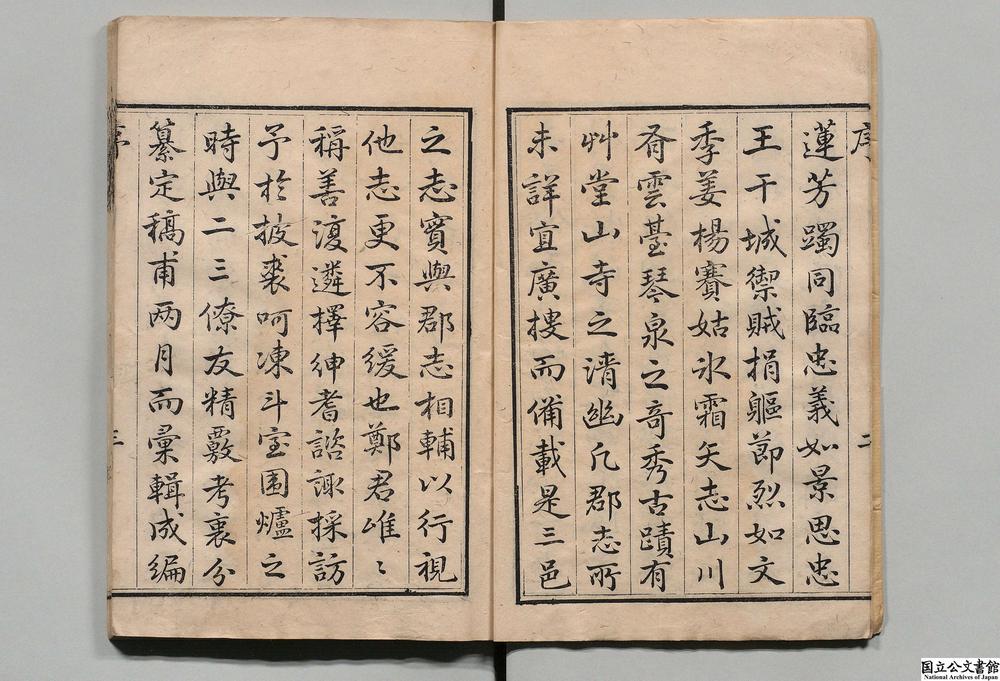 序 二
蓮芳躅同臨忠義如景思忠
王干城禦賊捐軀節烈如文
季姜楊賽姑氷霜矢志山川
奇雲臺琴泉之奇秀古蹟有
艸堂山寺之清幽凡郡志所
未詳宜廣搜而備載是三邑
之志實與郡志相輔以行視
他志更不容緩也鄭君唯〻
稱善復遴擇紳耆諮諏採訪
予於披裘呵凍斗室围爐之
時與二三僚友精覈考裏分
纂定稿甫两月而彙輯成編
序 三
国立公文書館
National Archives of Japan